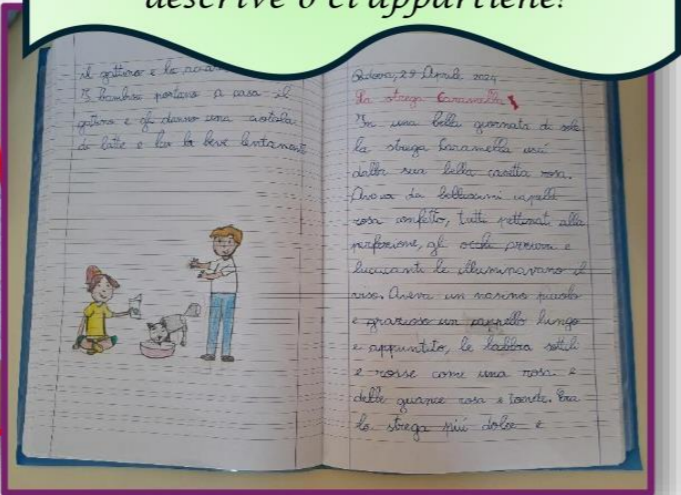 descrive o ci appartiene!
il gattino e la
I bambini portano a casa il
gattino e gli danno una ciotola
di latte e lui la beve lentamente
Padova, 29 Aprile 2024
La strega Caramella
In una bella giornata di sole
la strega Caramella uscì
dalla sua bella casetta rosa.
Aveva dei bellissimi capelli
rosa confetto, tutti pettinati alla
perfezione, gli occhi e
luccicanti le illuminavano il
viso. Aveva un nasino piccolo
e grazioso un cappello lungo
e appuntito, le labbra sottili
e rosse come una rosa e
delle guance rosa e tonde. Era
la strega più dolce e